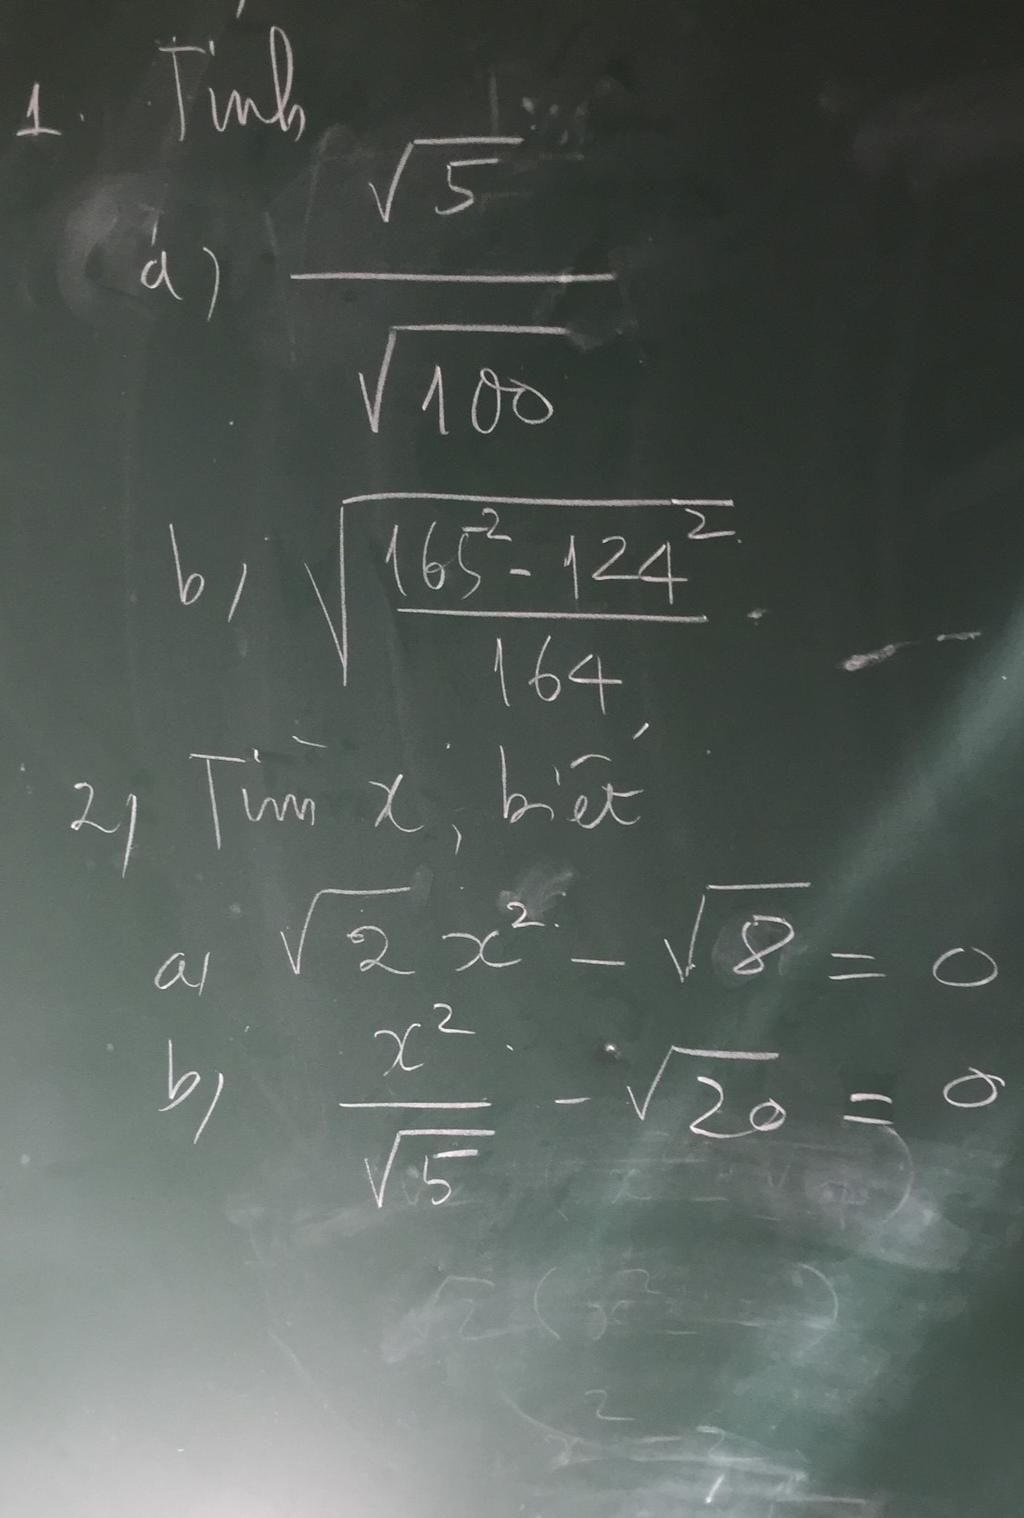 1. Tính
a) √5 / √100
b, √((165² - 124²) / 164)
2, Tìm x, biết
a, √2 x² - √8 = 0
b, x² / √5 - √20 = 0